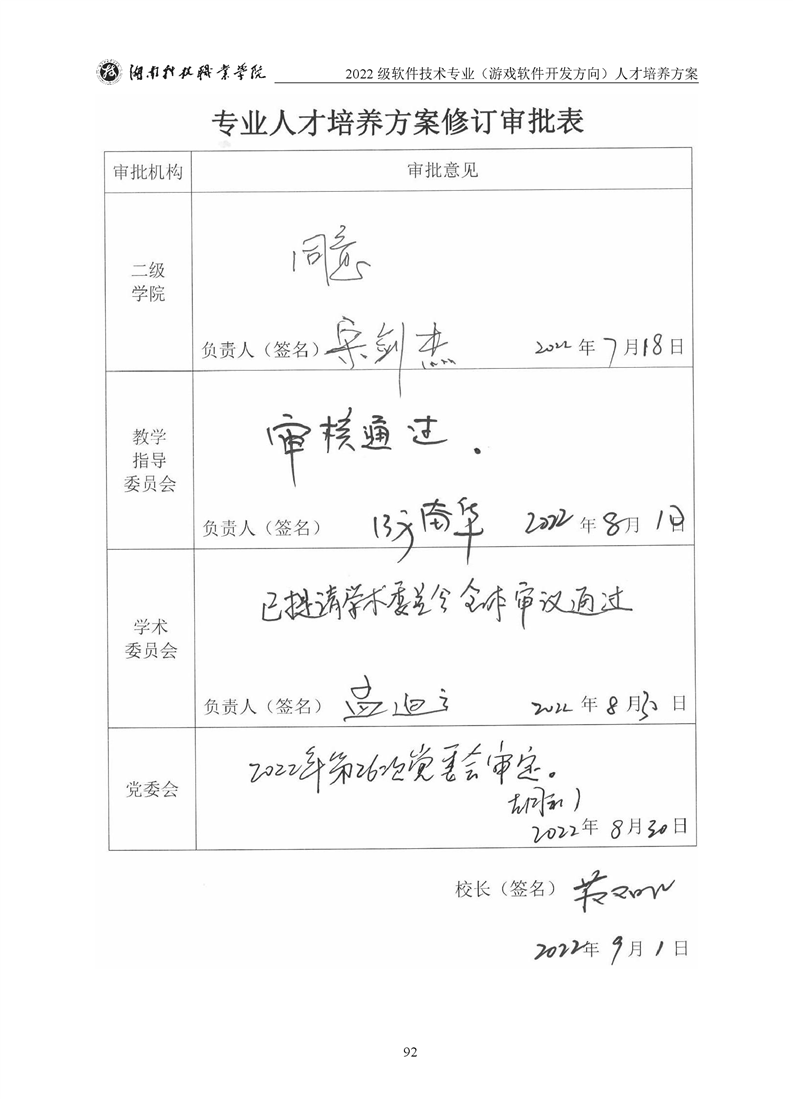 湖南科技职业学院
2022 级软件技术专业（游戏软件开发方向）人才培养方案
专业人才培养方案修订审批表
审批机构
审批意见
二级
学院
同意
负责人（签名）宋剑杰
2022 年 7 月 18 日
教学
指导
委员会
审核通过。
负责人（签名）
南华
2022 年 8 月 1 日
学术
委员会
已提请学术委员会全体审议通过
负责人（签名）
孟迪云
2022 年 8 月 30 日
党委会
2022年第26次党委会审定。
2022 年 8 月 30 日
校长（签名）
2022 年 9 月 1 日
92